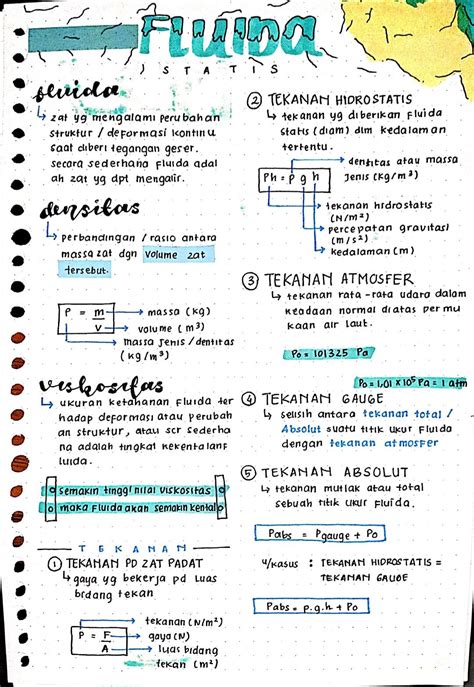 FLUIDA
STATIS
fluida
↳ zat yg mengalami perubahan
struktur / deformasi kontinu
saat diberi tegangan geser.
secara sederhana fluida adal
ah zat yg dpt mengalir.
densitas
↳ perbandingan / rasio antara
massa zat dgn volume zat
tersebut.
ρ = m/V
→ massa (kg)
→ volume (m³)
→ massa jenis / dentitas
(kg/m³)
viskositas
↳ ukuran ketahanan fluida ter
hadap deformasi atau perubah
an struktur, atau scr sederha
na adalah tingkat kekentalan f
luida.
semakin tinggi nilai viskositas
maka fluida akan semakin kental
TEKANAN
① TEKANAN PD ZAT PADAT
↳ gaya yg bekerja pd luas
bidang tekan
P = F/A
→ tekanan (N/m²)
→ gaya (N)
→ luas bidang
tekan (m²)
② TEKANAN HIDROSTATIS
↳ tekanan yg diberikan fluida
statis (diam) dlm kedalaman
tertentu.
→ dentitas atau massa
jenis (kg/m³)
Ph = ρ g h
→ tekanan hidrostatis
(N/m²)
→ percepatan gravitasi
(m/s²)
→ kedalaman (m)
③ TEKANAN ATMOSFER
↳ tekanan rata-rata udara dalam
keadaan normal diatas permu
kaan air laut.
Po = 101325 Pa
Po = 1,01 x 10⁵ Pa = 1 atm
④ TEKANAN GAUGE
↳ selisih antara tekanan total /
Absolut suatu titik ukur fluida
dengan tekanan atmosfer
⑤ TEKANAN ABSOLUT
↳ tekanan mutlak atau total
sebuah titik ukur fluida.
Pabs = Pgauge + Po
u/kasus : TEKANAN HIDROSTATIS =
TEKANAN GAUGE
Pabs = ρ.g.h + Po